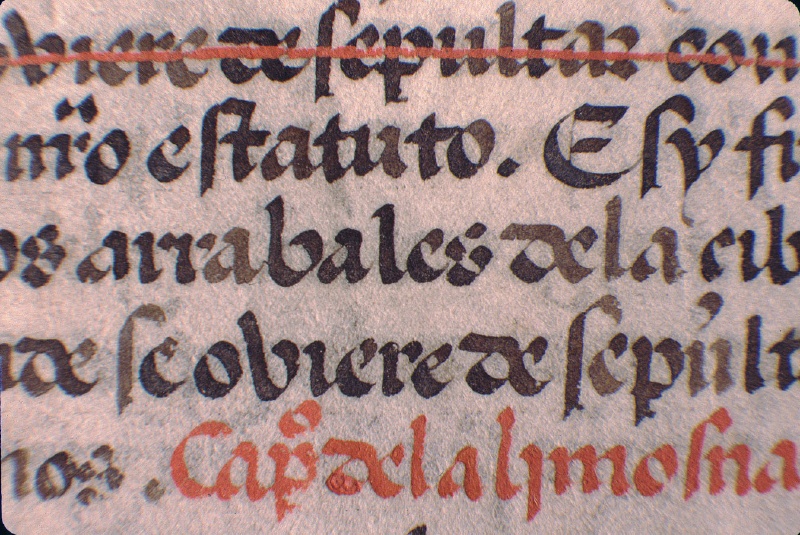 obiere de sepultar con
nr̃o estatuto. E sy fi
os arrabales dela cib
nde se obiere de sepult
nos. Cap̃º dela lymosna